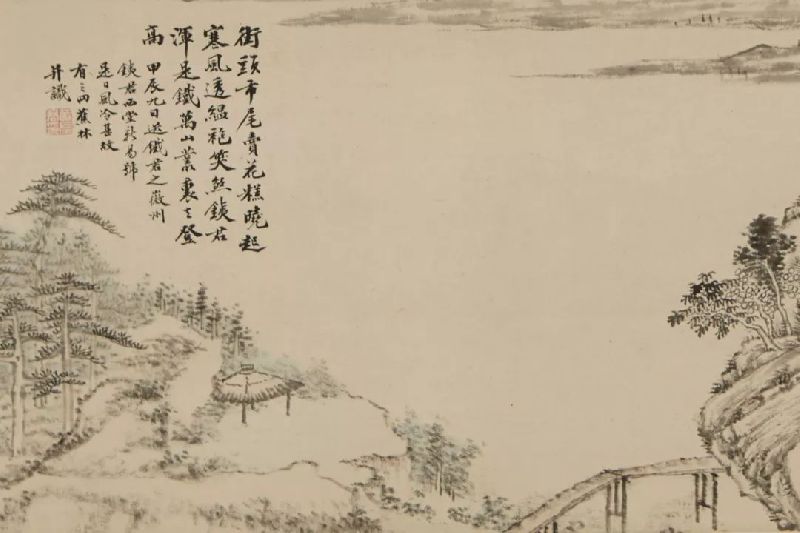 街頭市尾賣花糕曉起
寒風透縕袍笑煞銕君
渾是鐵萬山叢裏去登
高 甲辰九日送鐵君之徽州
銕君西堂新易號
是日風冷甚故
有三四蕉林
并識